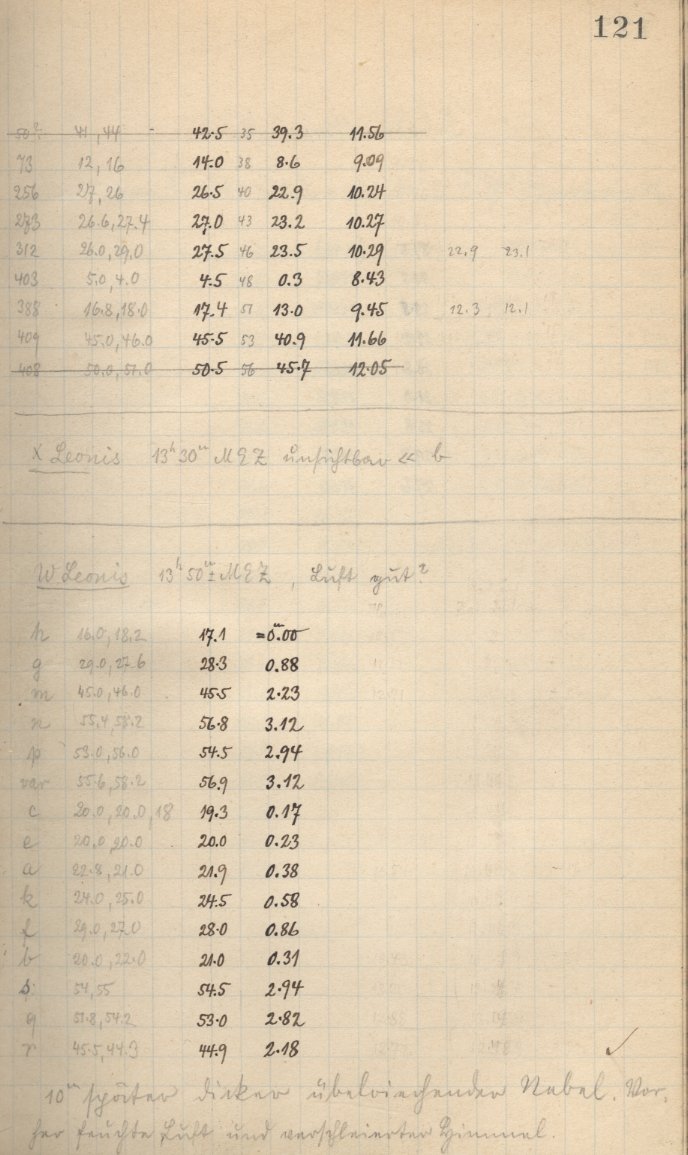 121
41, 44 42.5 35 39.3 11.56
73 12, 16 14.0 38 8.6 9.09
256 27, 26 26.5 40 22.9 10.24
273 26.6, 27.4 27.0 43 23.2 10.27
312 26.0, 29.0 27.5 46 23.5 10.29 22.9 23.1
403 5.0, 4.0 4.5 48 0.3 8.43
388 16.8, 18.0 17.4 51 13.0 9.45 12.3 12.1
409 45.0, 46.0 45.5 53 40.9 11.66
408 50.0, 51.0 50.5 56 45.7 12.05
X Leonis 13h 30m MEZ unsichtbar << b
W Leonis 13h 50m MEZ, Luft gut?
h 16.0, 18.2 17.1 = 0.00
g 29.0, 27.6 28.3 0.88
m 45.0, 46.0 45.5 2.23
n 55.4, 58.2 56.8 3.12
p 53.0, 56.0 54.5 2.94
var 55.6, 58.2 56.9 3.12
c 20.0, 20.0, 18 19.3 0.17
e 20.0, 20.0 20.0 0.23
a 22.8, 21.0 21.9 0.38
k 24.0, 25.0 24.5 0.58
f 29.0, 27.0 28.0 0.86
b 20.0, 22.0 21.0 0.31
s 54, 55 54.5 2.94
q 51.8, 54.2 53.0 2.82
r 45.5, 44.3 44.9 2.18
10m später dicker übelriechender Nebel. Vor-
her feuchte Luft und verschleierter Himmel.